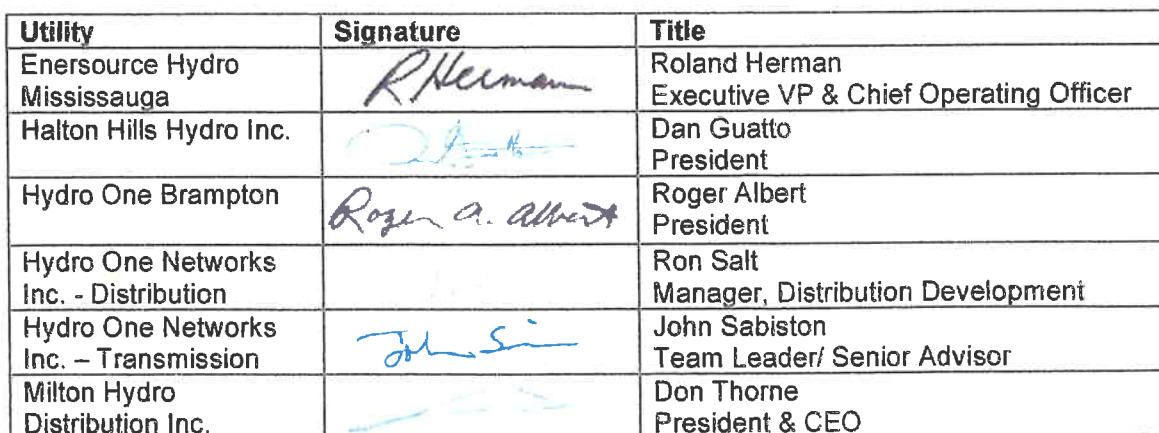 Utility Signature Title
Enersource Hydro Mississauga R Herman Roland Herman
Executive VP & Chief Operating Officer
Halton Hills Hydro Inc. Dan Guatto
President
Hydro One Brampton Roger A. Albert Roger Albert
President
Hydro One Networks Inc. - Distribution Ron Salt
Manager, Distribution Development
Hydro One Networks Inc. – Transmission John Sabiston
Team Leader/ Senior Advisor
Milton Hydro Distribution Inc. Don Thorne
President & CEO